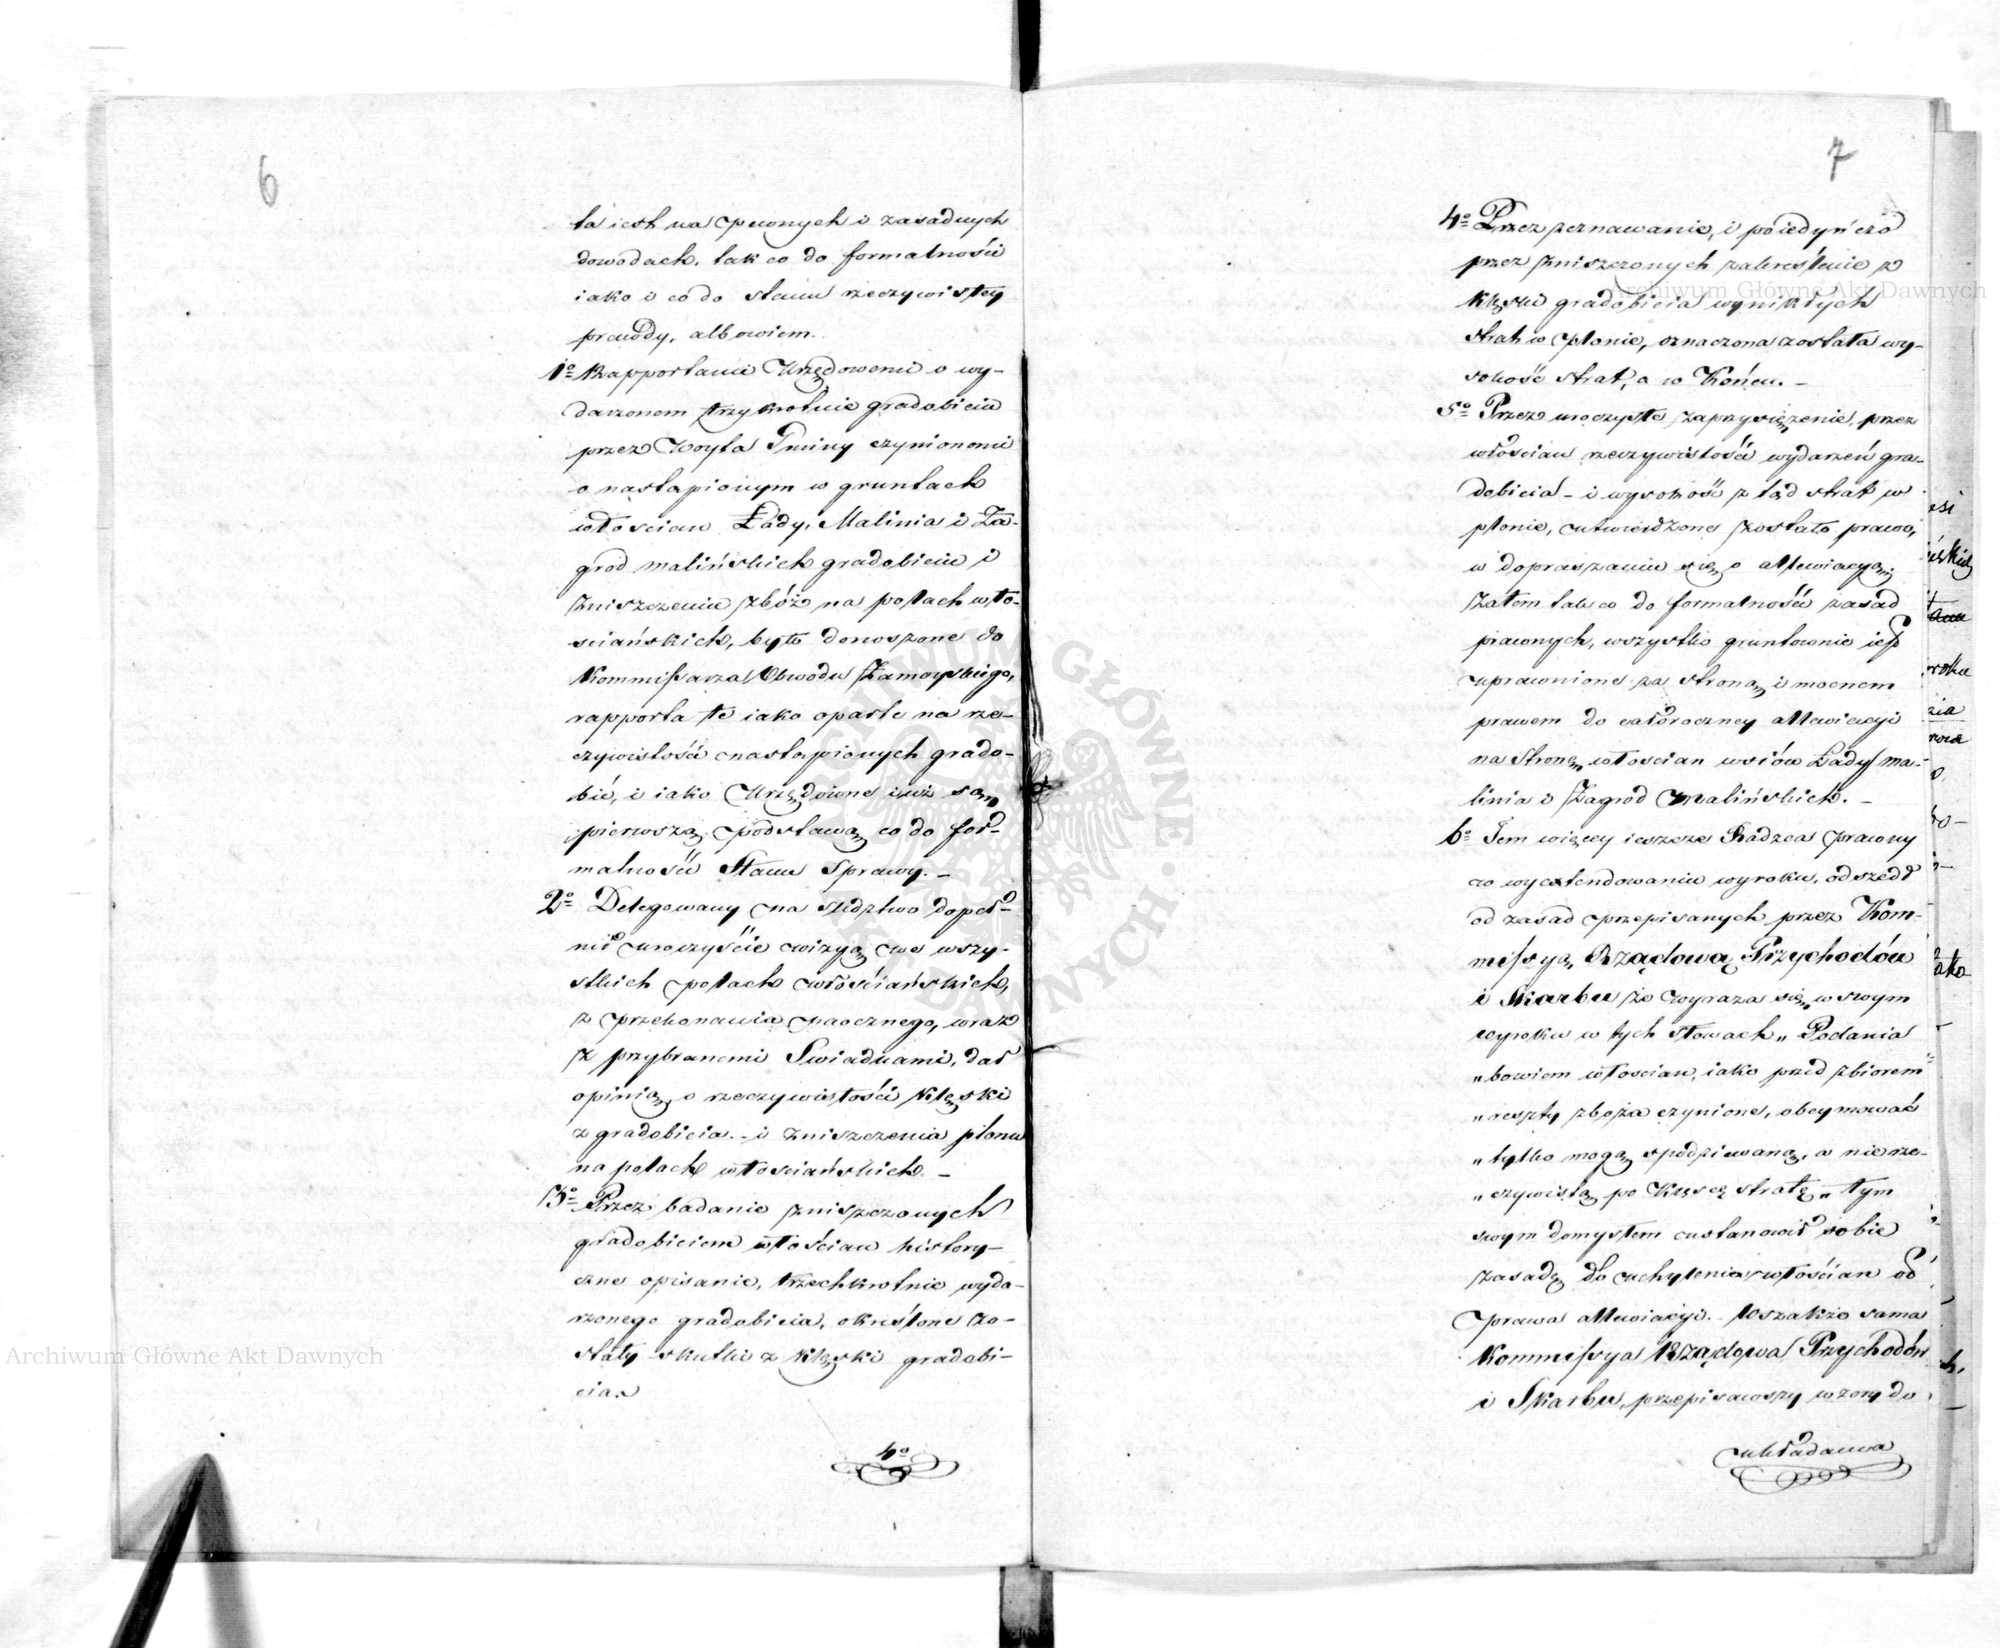 6
ta iest na pewnych i zasadnych
dowodach, tak co do formalności
iako i co do stanu rzeczywistey
prawdy, albowiem.
1o Rapportami Urzędowemi o wy-
darzonem trzykrotnie gradobiciu
przez Woyta Gminy czynionemi
o nastąpionym w gruntach
włościan Łady, Malinia i Za-
grod malińskich gradobiciu i
zniszczeniu zbóż na polach wło-
sciańskich, było donoszone do
Kommissarza Obwodu Zamoyskiego,
rapporta te iako oparte na rze-
czywistości nastąpionych grado-
bić, i iako Urzędowne iuż są
pierwszą podstawą co do for-
malności Stanu Sprawy. -
2o Delegowany na śledztwo dopeł-
nił uroczyście wizyą we wszy-
stkich polach włościańskich,
z przekonania naocznego, wraz
z przybranemi Swiadkami, dał
opinią o rzeczywistości klęski
z gradobicia - i zniszczenia plonu
na polach włościańskich. -
3o Przez badanie zniszczonych
gradobiciem włościan history-
czne opisanie, trzechkrotnie wyda-
rzonego gradobicia, okréślone zo-
stały skutki z klęski gradobi-
cia.
4o
7
4o Przez zeznawanie, i poiedyńczo
przez zniszczonych zakreślenie z
klęski gradobicia wynikłych
strat w plonie, oznaczona została wy-
sokość strat, a w Końcu. -
5o Przez uroczyste zaprzysiężenie, przez
włościan rzeczywistości wydarzeń gra-
dobicia - i wysokość z tąd strat w
plonie, utwierdzone zostało prawo,
w dopraszaniu się o allewiacyą.
Zatem tak co do formalności zasad
prawnych, wszystko gruntownie iest
uprawnione za stroną i mocnem
prawem do całoroczney allewiacyi
na Stronę włościan wsiów Łady ma-
linia i Zagrod Malińskich. -
6o Tem więcey ieszcze Radzca prawny
w wyextendowaniu wyroku, odszedł
od zasad przepisanych przez Kom-
missyą Rządową Przychodów
i Skarbu że wyraza się w swym
wyroku w tych słowach „ Podania
„ bowiem włościan, iako przed zbiorem
„ reszty zboża czynione, obeymować
„ tylko mogą spodziewaną, a nie rze-
„ czywistą po klęsce stratę „ tym
swym domysłem ustanowił sobie
zasadę do uchylenia włościan od
prawa allewiacyi. Wszakże sama
Kommissya Rządowa Przychodów
i Skarbu, przepisawszy wzory do
układania
Archiwum Główne Akt Dawnych
Archiwum Główne Akt Dawnych
ARCHIWUM GŁÓWNE AKT DAWNYCH